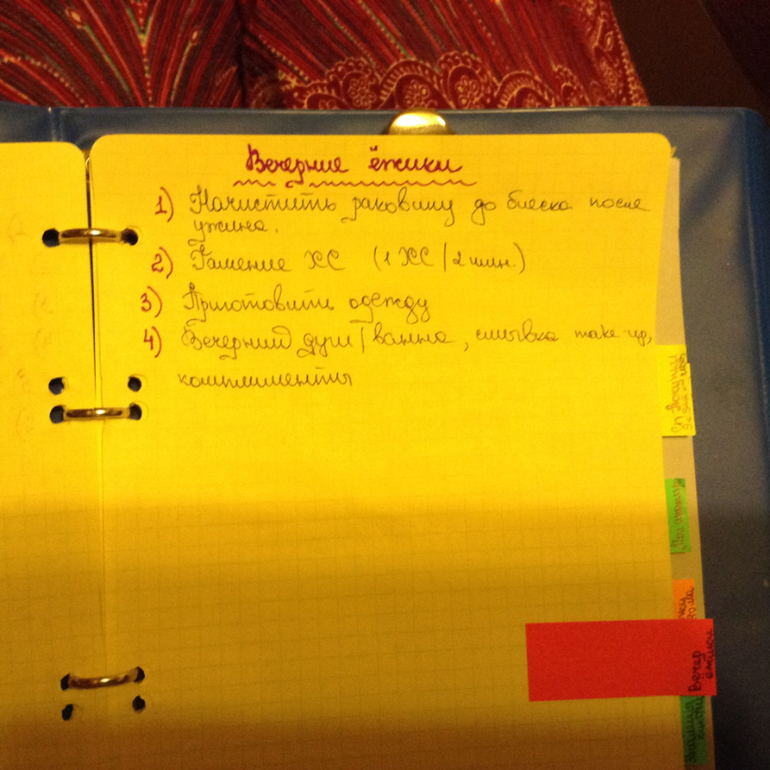 Вечерние ёжики
1) Начистить раковину до блеска после
ужина.
2) Гашение ХС (1 ХС / 2 мин.)
3) Приготовить одежду
4) Вечерний душ / ванна, смывка make-up,
комплименты
Вечер
ёжики